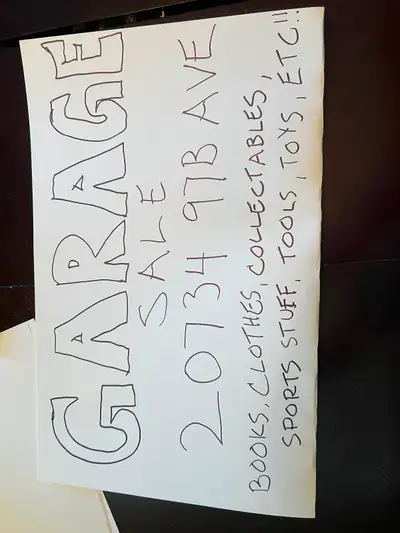 GARAGE
SALE
20734 97B AVE
BOOKS, CLOTHES, COLLECTABLES,
SPORTS STUFF, TOOLS, TOYS, ETC!!